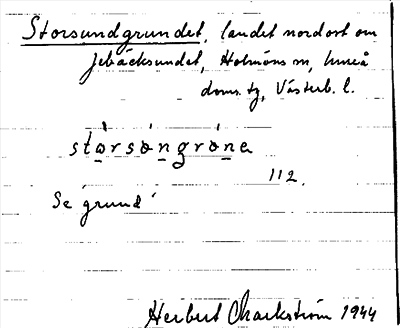 Storsundgrundet, landet nordost om
Jebäcksundet, Holmöns sn, Umeå
doms. tg, Västerb. l.
stårsøngrøne
112.
Se grund
Herbert Markström 1944